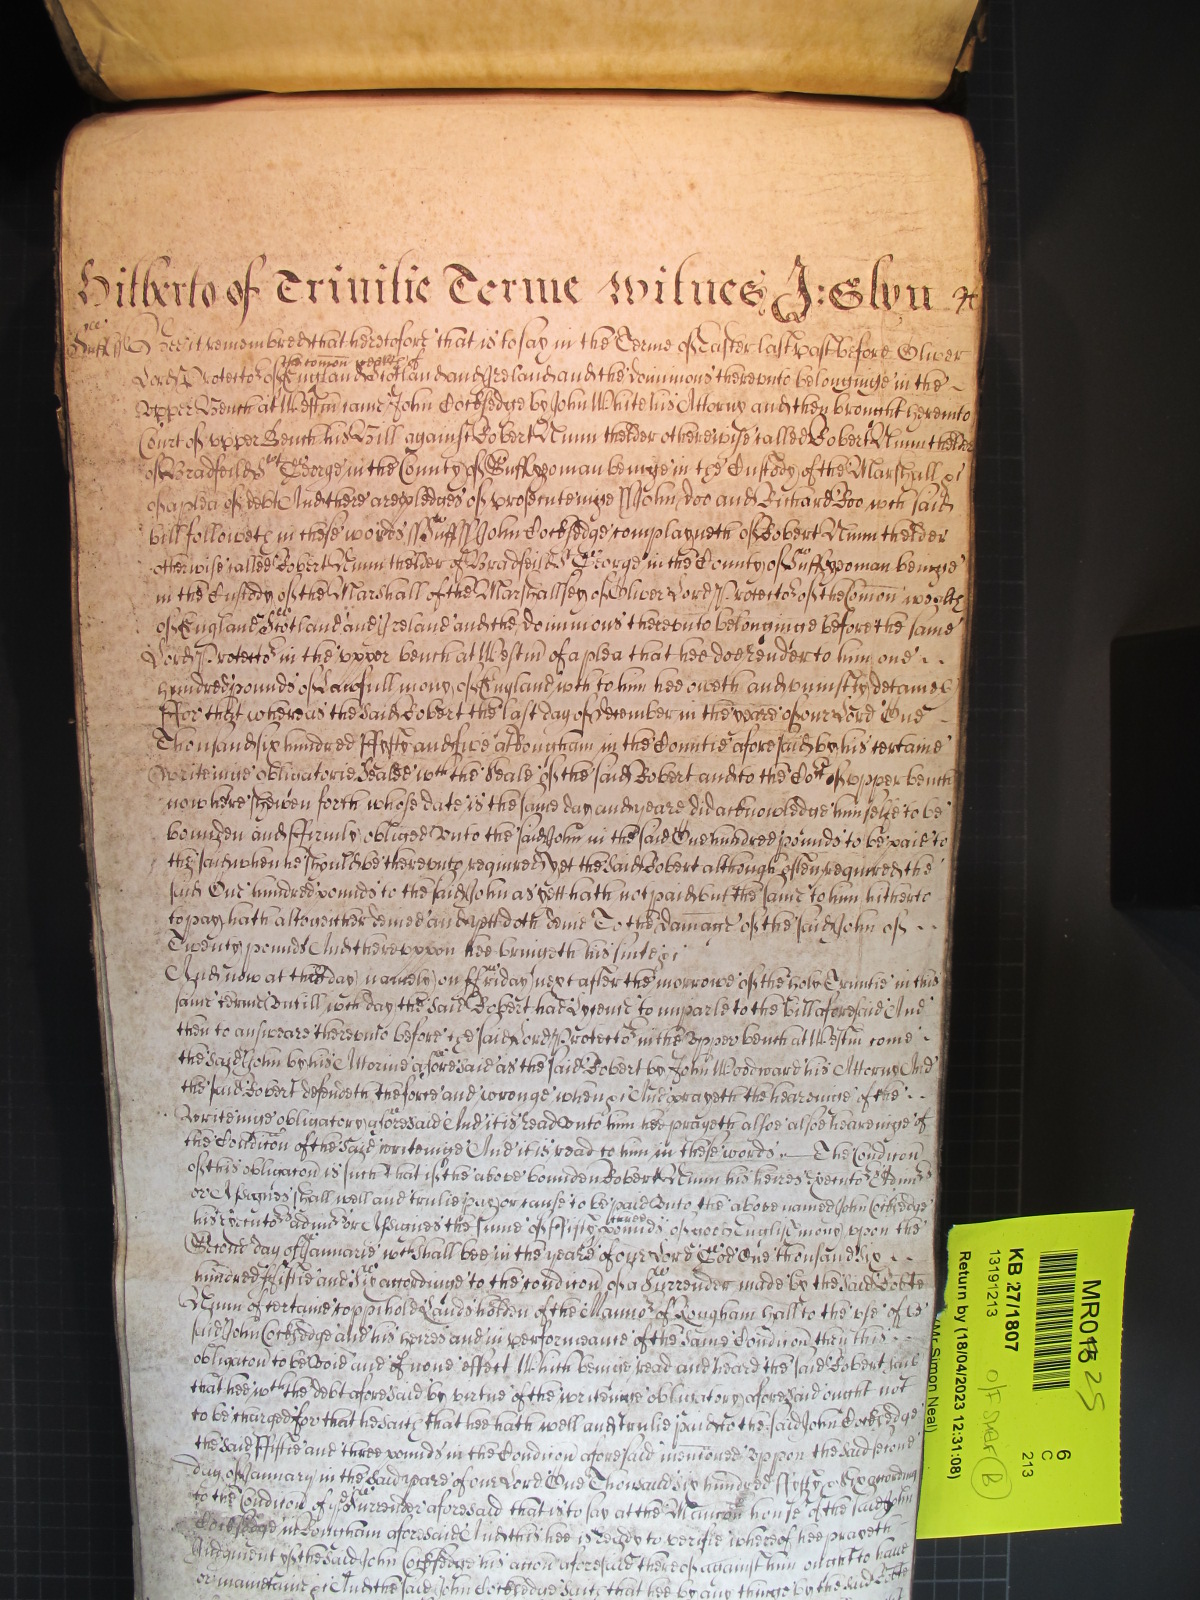 Hitherto of Trinitie Terme Witnes J: Glyn
Suff ss Bee it remembred that heretofore that is to say in the Terme of Easter last past before Oliver
the comon wealth of
Lord Protector of England Scotland and Ireland and the dominions thereunto belonginge in the
upper Bench at Westm came John Cocksedge by John White his Attorny and then brought here into
Court of upper Bench his Bill against Robert Nunn thelder otherwise called Robert Nunn thelder
of Bradfeild St George in the County of Suff yoman beinge in the Custody of the Marshall &c
of a plea of debt And there are pledges of prosecuteinge John Doo and Richard Roo wch said
bill followeth in these words Suff ss John Cocksedge complayneth of Robert Nunn thelder
otherwise called Robert Nunn thelder of Bradfeild St George in the County of Suff yoman beinge
in the Custody of the Marshall of the Marshallsey of Oliver Lord Protector of the Comon wealth
of England Scotland and Ireland and the dominions thereunto belonginge before the same
Lord Protector in the upper bench at Westm of a plea that hee doe render to him one
hundred pounds of Lawfull mony of England wch to him hee oweth and uniustly detaineth
ffor that whereas the said Robert the last day of December in the yeare of our Lord One
Thousand six hundred ffyfty and five at Rougham in the Countie aforesaid by his certaine
writeinge obligatorie Sealed wth the Seale of the said Robert and to the Cort of upper bench
now here shewen forth whose date is the same day and yeare did acknowledge himselfe to be
bounden and ffirmly obliged Unto the said John in the said One hundred pounds to be paid to
the said when he should be thereunto required yet the said Robert although often required the
said One hundred pounds to the said John as yett hath not paid but the same to him hitherto
to pay hath altogether denied and yett doth denie To the damage of the said John of
Twenty pounds And thereuppon hee bringeth his suite &c
And now at this day namely on ffriday next after the morrowe of the holy Trinitie in this
same terme Untill wch day the said Robert had Lycence to imparle to the bill aforesaid And
then to answeare thereunto before the said Lord Protector in the upper bench at Westm come
the said John by his Attornie aforesaid as the said Robert by John Woodward his Attorny And
the said Robert defendeth the force and wronge when &c And prayeth the heareinge of the
writeinge obligatory aforesaid And it is read unto him hee prayeth alsoe alsoe heareinge of
the Condicon of the said writeinge And it is read to him in these words The Condicon
of this obligacon is such that if the above bounden Robert Nunn his heires Executors Admrs
or Assignes shall well and trulie pay or cause to be paid Unto the above named John Cocksedge
three
his Executors Admrs or Assignes the sume of ffifty pounds of good English mony upon the
Second day of Januarie wch shall bee in the yeare of our Lord God One thousand Six
hundred ffiftie and Six accordinge to the condicon of a Surrender made by the said Robte
Nunn of certaine coppihold Lands holden of the Mannor of Rougham hall to the use of the
said John Cocksedge and his heires and in performeance of the same Condicon then this
obligacon to be Void and of none effect Which beinge read and heard the said Robert saith
that hee wth the debt aforesaid by virtue of the writeinge obligatory aforesaid ought not
to be charged for that he saith that hee hath well and trulie paid to the said John Cocksedge
the said ffiftie and three pounds in the Condicon aforesaid mencioned Uppon the said second
day of January in the said yeare of our Lord One Thousand Six hundred ffyfty & Six according
to the Condicon of ye Surrender aforesaid that is to say at the Mancon house of the said John
Cocksedge in Rougham aforesaid And this hee is ready to verifie whereof hee prayeth
Judgment yf the said John Cocksedge his accon aforesaid thereof against him ought to have
or mainetaine &c And the said John Cocksedge Saith that hee by any thinge by the said Robte
MR015 25
6
C
213
KB 27/1807
13191213
Return by (18/04/2023 12:31:08)
(Mr Simon Neal)